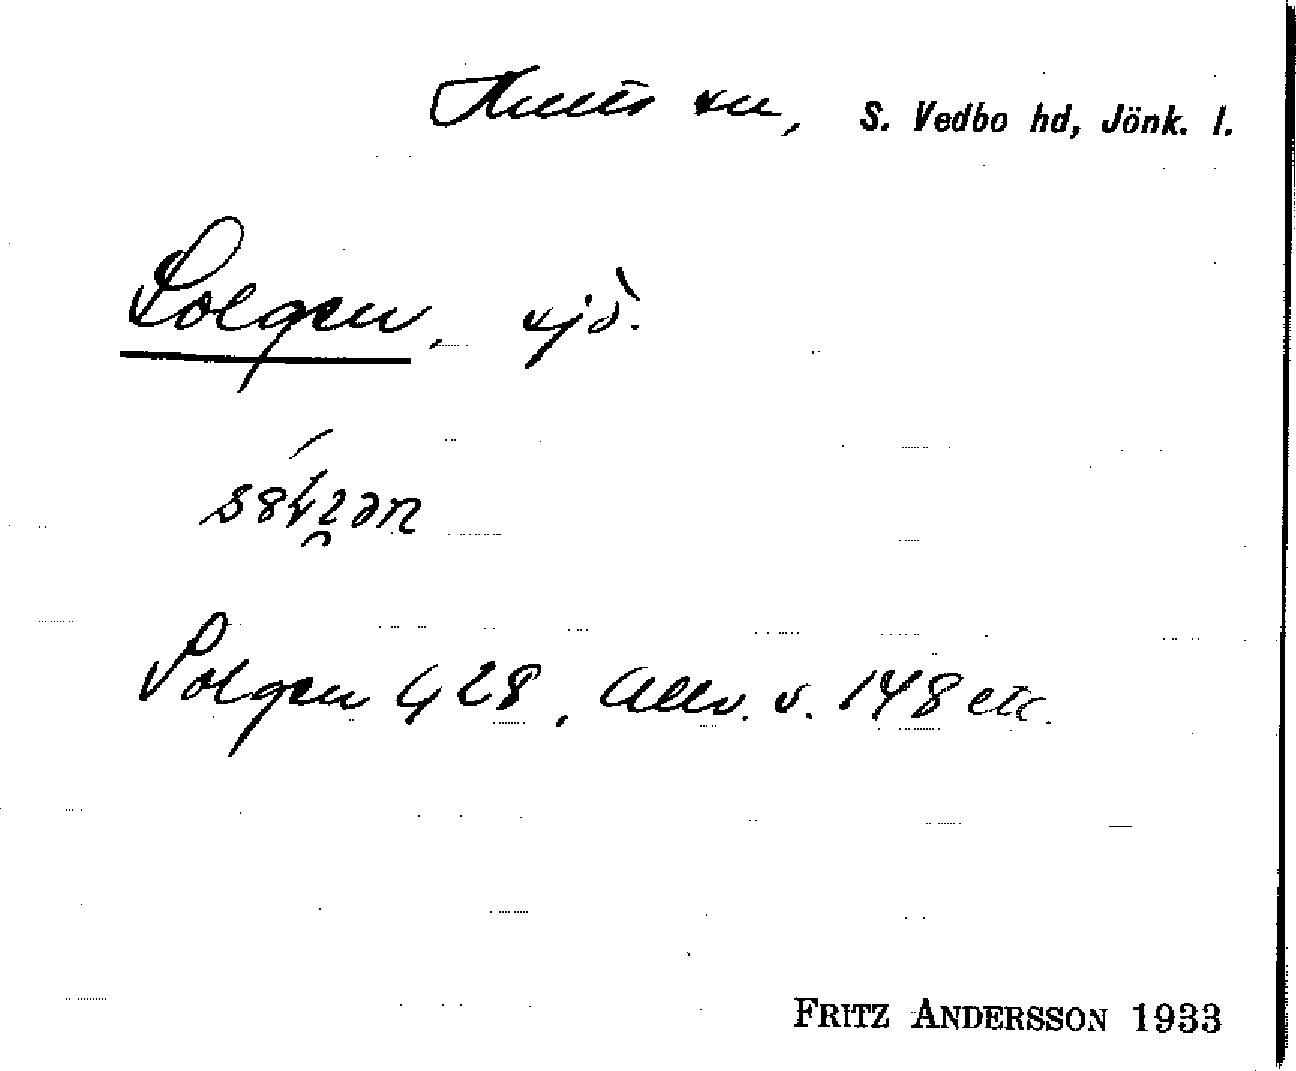 Hults sn, S. Vedbo hd, Jönk. l.
Solgen, sjö.
Solgen 428, Allv. s. 148 etc.
FRITZ ANDERSSON 1933